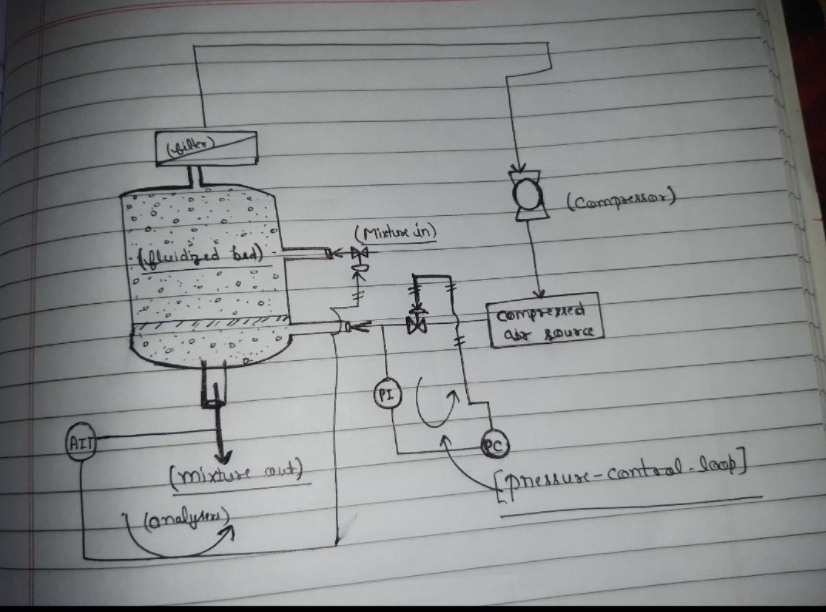 (filter)
(Mixture in)
(Compressor)
(fluidized bed)
compressed
air source
PI
PC
AIT
(mixture out)
[pressure-control-loop]
(analysers)